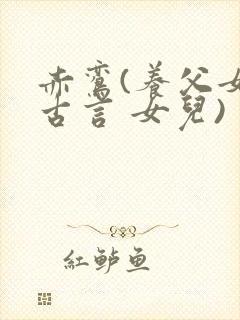 赤鸞(養父女
古言 女兒)
紅鲈鱼